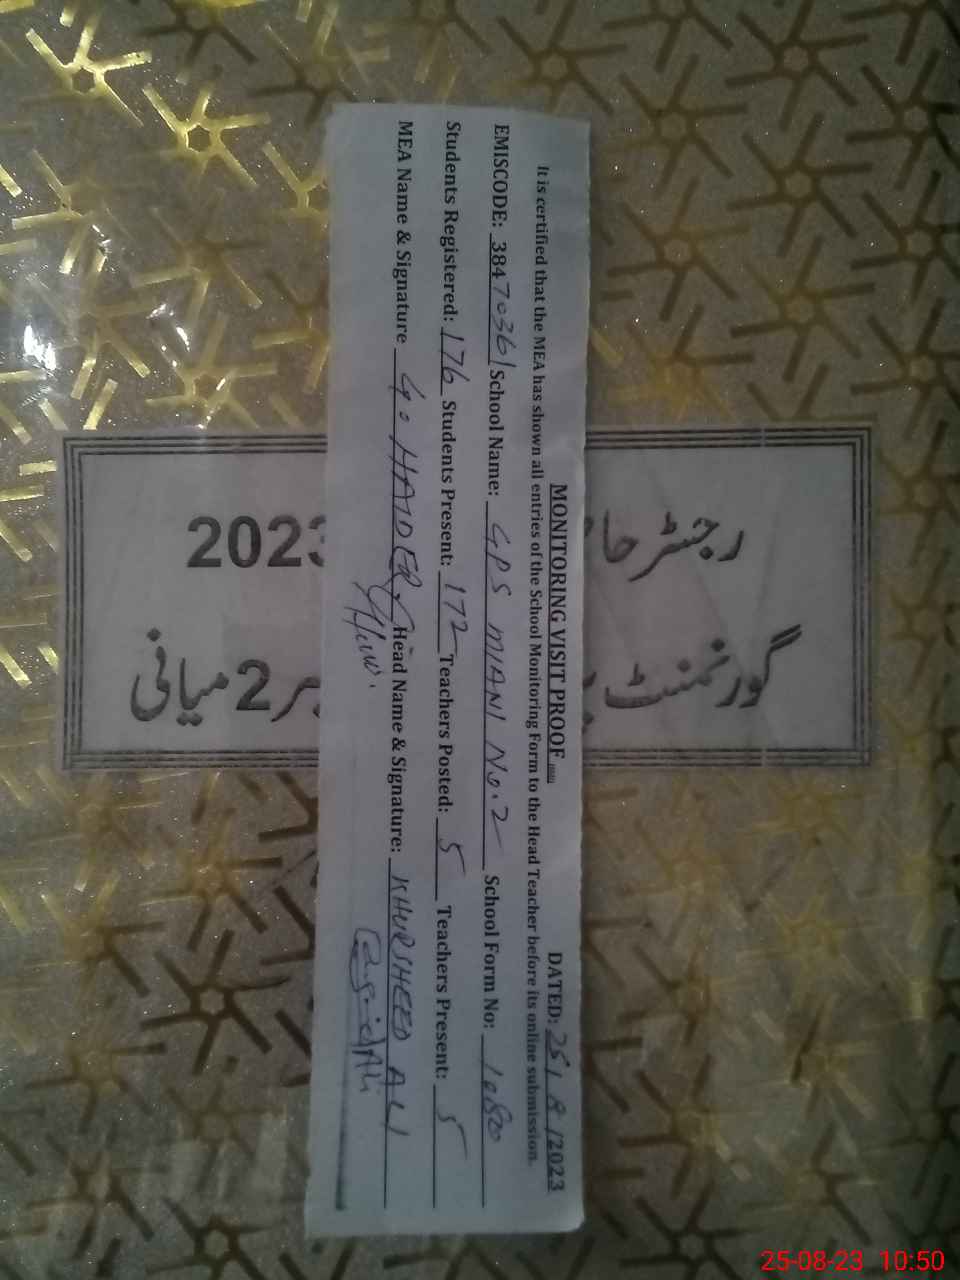 MONITORING VISIT PROOF DATED: 25/8/2023
It is certified that the MEA has shown all entries of the School Monitoring Form to the Head Teacher before its online submission.
EMISCODE: 38470361 School Name: GPS MIANI No.2 School Form No: 1080
Students Registered: 176 Students Present: 172 Teachers Posted: 5 Teachers Present: 5
MEA Name & Signature G. HAIDER Head Name & Signature: KHURSHEED ALI
رجسٹر حا 2023
گورنمنٹ 2 میانی
25-08-23 10:50